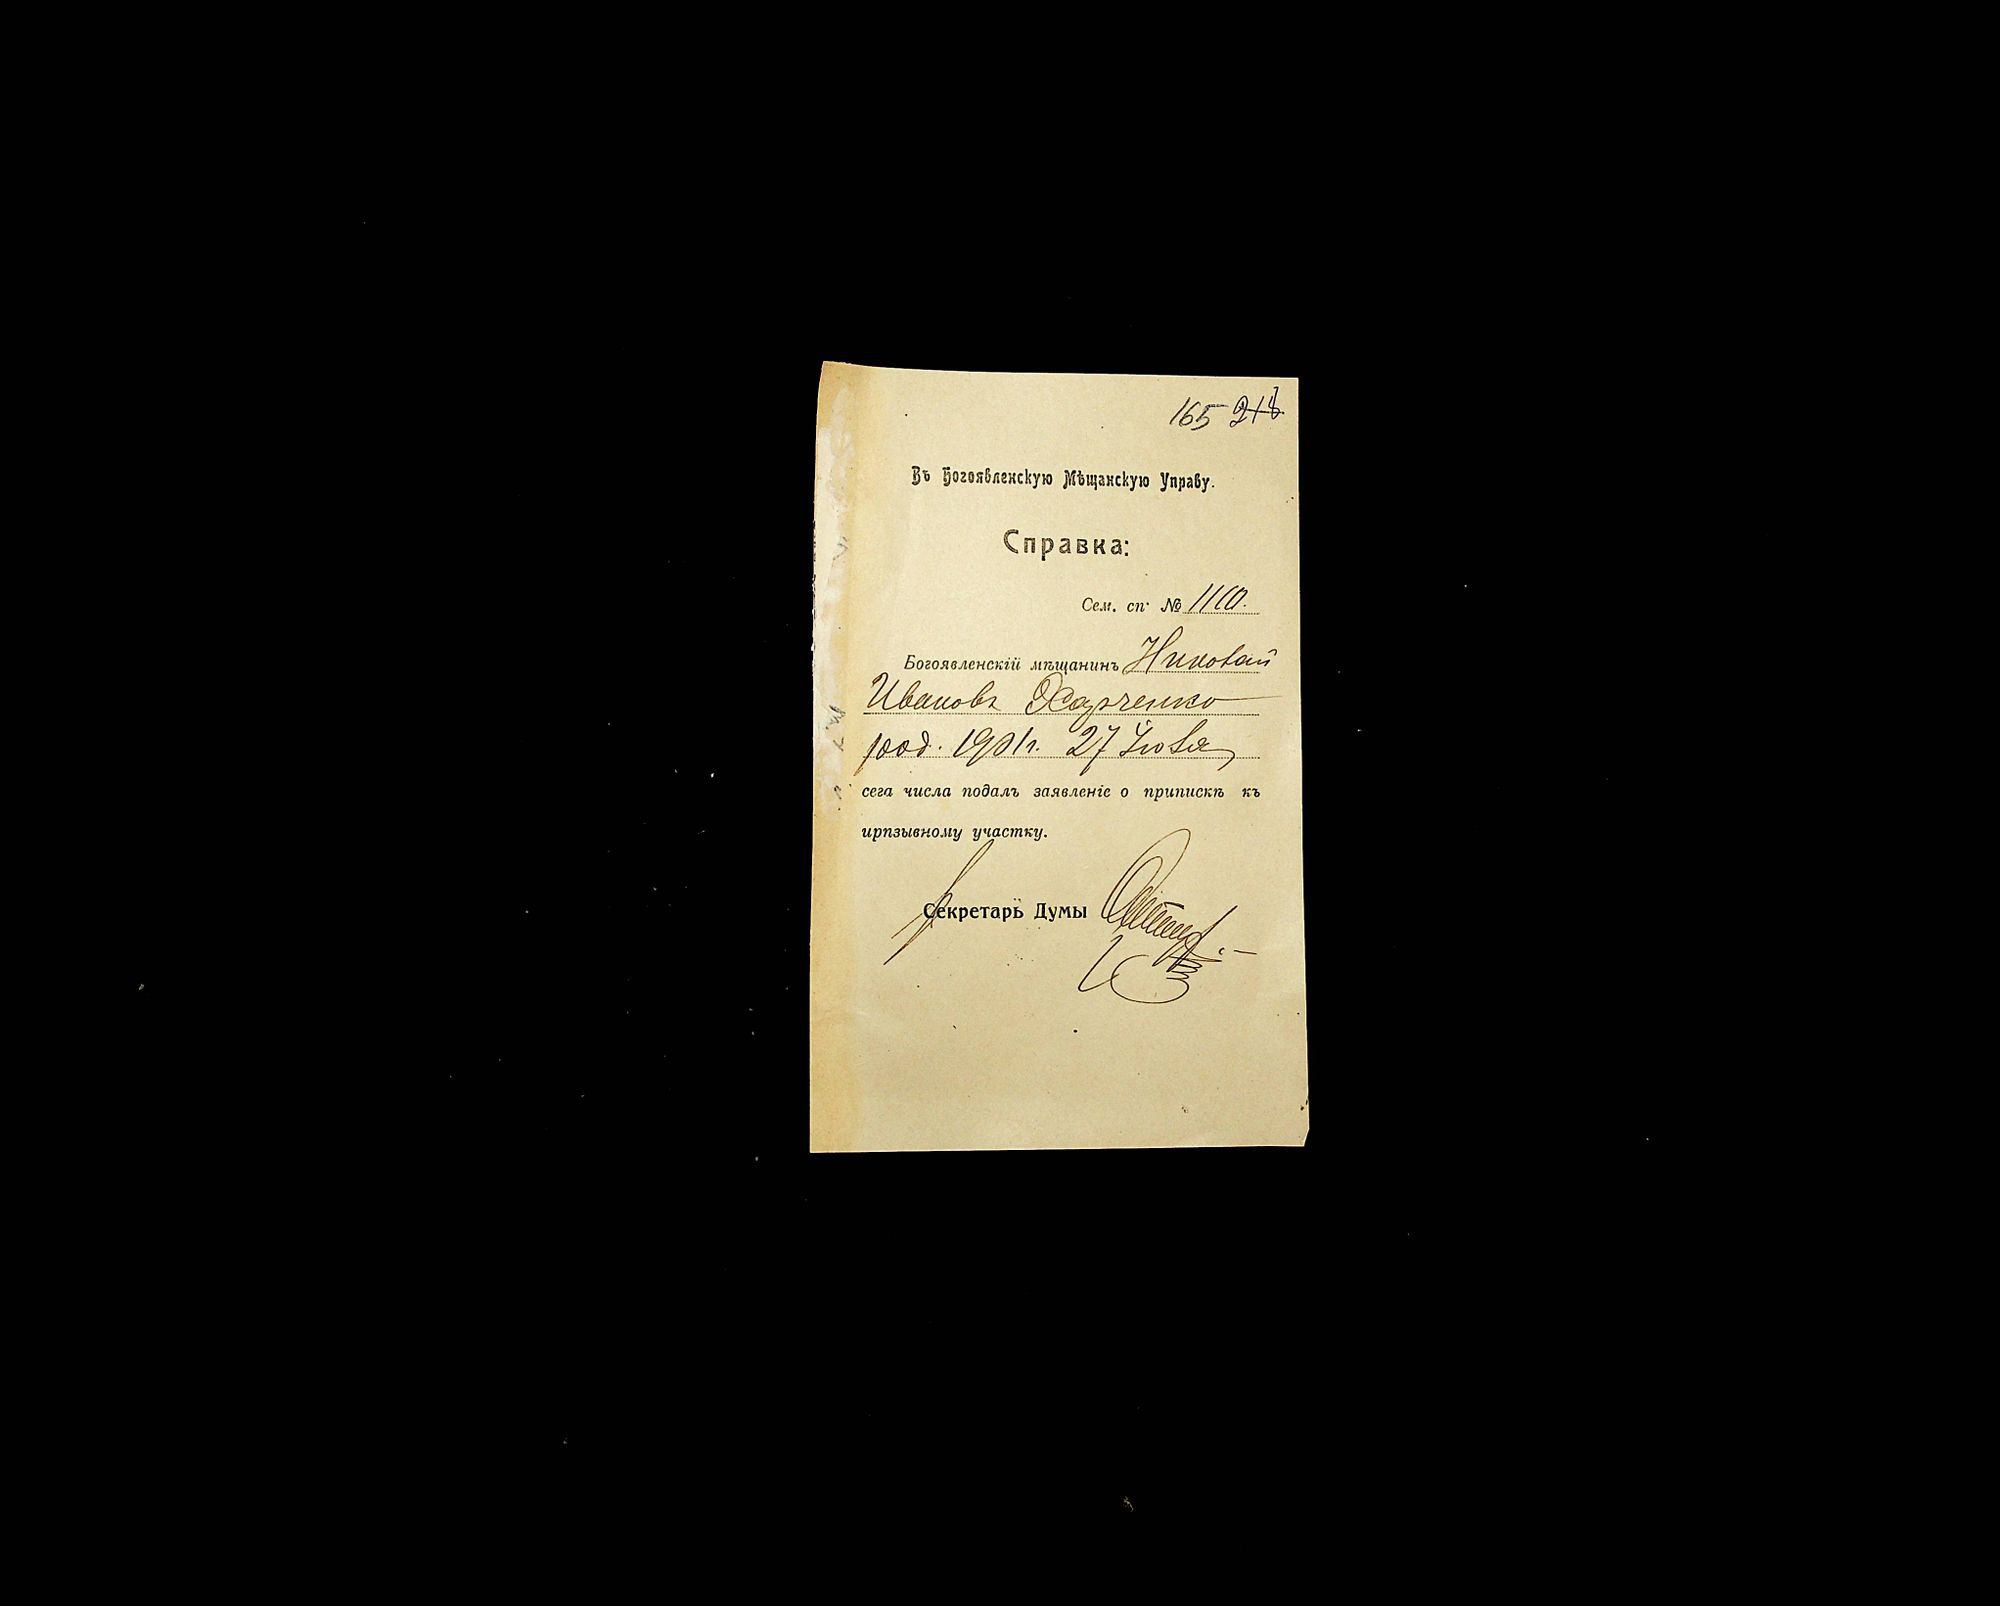 165 218
Въ Богоявленскую Мѣщанскую Управу.
Справка:
Сем. сп. № 1110.
Богоявленскій мѣщанинъ Николай
Ивановъ Харченко
род. 1901г. 27 Іюля
сега числа подалъ заявленіе о припискѣ къ
ирпзывному участку.
Секретарь Думы